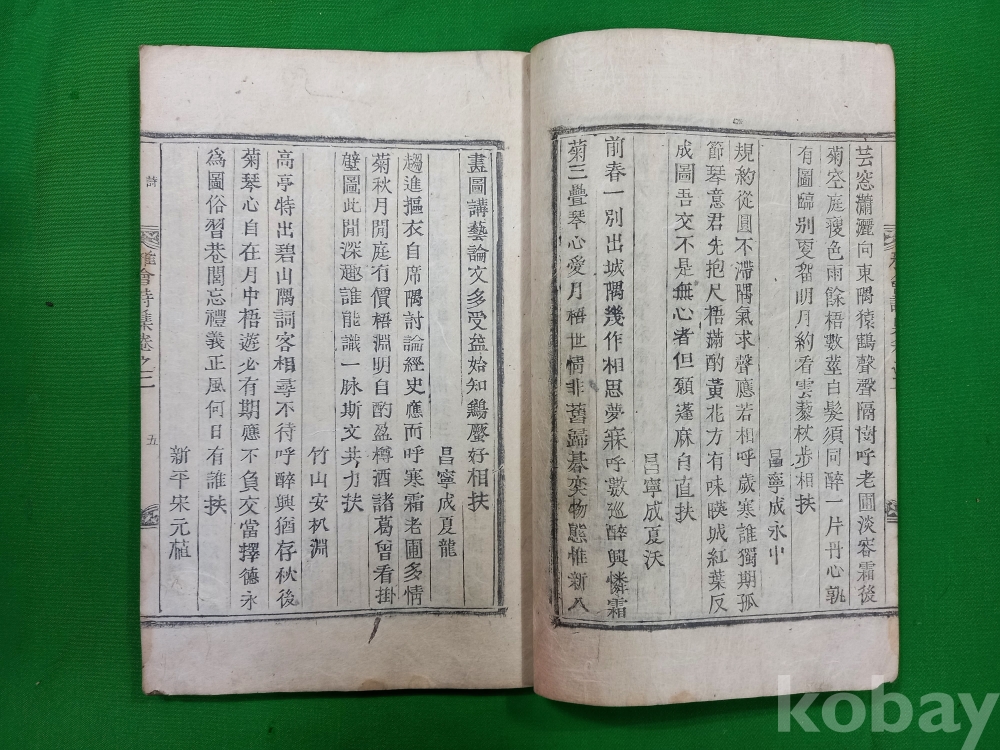 芸窓瀟灑向東隅猿鶴聲聲隔樹呼老圃淡容霜後
菊空庭瘦色雨餘梧數莖白髮須同醉一片丹心孰
有圖臨別更留明月約看雲藜杖步相扶
昌寧成永中
規約從圓不滯隅氣求聲應若相呼歲寒誰獨期孤
節琴意君先抱尺梧滿酌黃花方有味暎城紅葉反
成圖吾交不是無心者但願蓬麻自直扶
昌寧成夏沃
前春一別出城隅幾作相思夢寐呼數廵醉興憐霜
菊三疊琴心愛月梧世情非舊歸碁奕物態惟新八
畫圖講藝論文多受益始知鷄壓好相扶
昌寧成夏龍
趨進摳衣自席隅討論經史應而呼寒霜老圃多情
菊秋月閒庭有價梧淵明自酌盈樽酒諸葛曾看掛
壁圖此閒深趣誰能識一脉斯文共力扶
竹山安淵
高亭特出碧山隅詞客相尋不待呼醉興猶存秋後
菊琴心自在月中梧遊必有期應不負交當擇德永
為圖俗習巷閭忘禮義正風何日有誰扶
新平宋元植
詩
會詩集卷之二
五
kobay